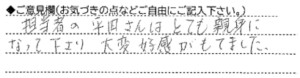 ◆ご意見欄(お気づきの点などご自由にご記入下さい。)
担当者の平田さんはとても親身に
なって下さり大変好感がもてました。